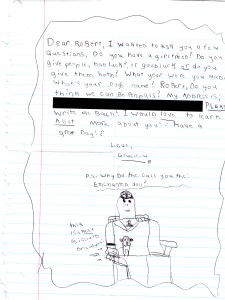 Dear Robert, I wanted to ask you a few
questions, Do you have a girlfriend? Do you
give people, bad luck, or good luck or do you
give them both? What year were you made
What's your Dogs name? Robert, Do you
think we can be Penpals? My Address is,
PLEASE
Write me Back! I would love to learn
Alot More about you! Have a
good Day!
Love,
P.S. Why Do the call you the
Enchanted doll?
this
is